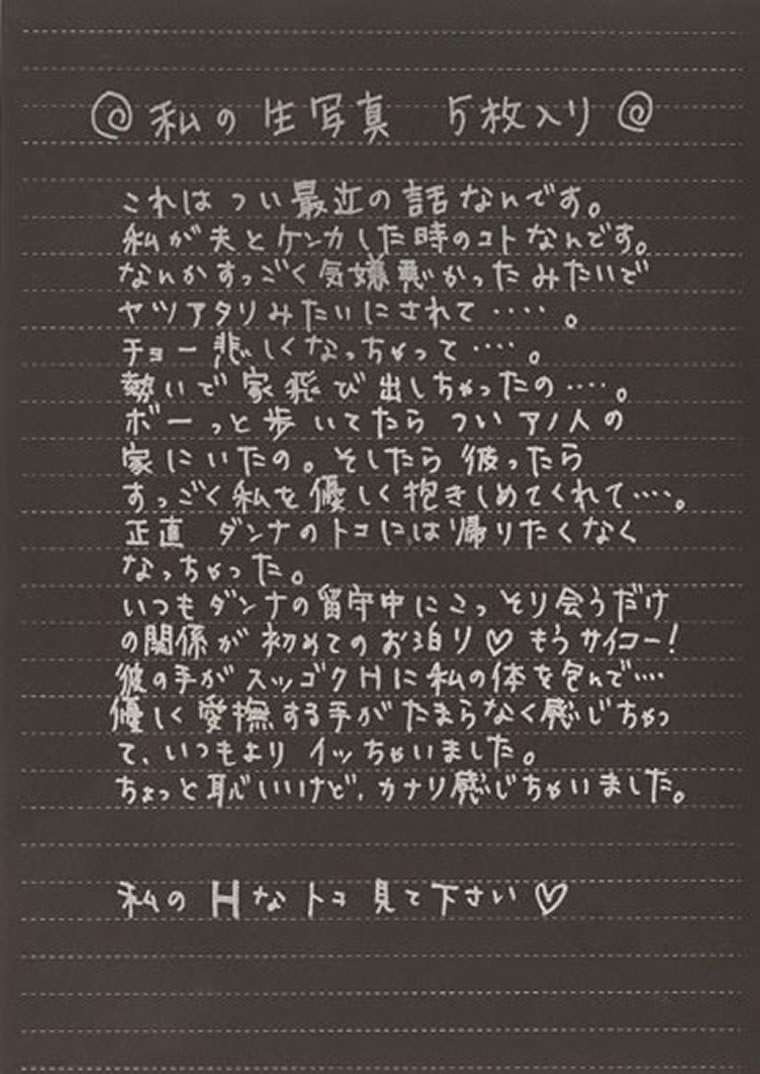 私の生写真 5枚入り
これはつい最近の話なんです。
私が夫とケンカした時のコトなんです。
なんかすっごく気嫌悪かったみたいで
ヤツアタリみたいにされて‥‥。
チョー悲しくなっちゃって‥‥。
勢いで家飛び出しちゃったの‥‥。
ボーっと歩いてたらついアノ人の
家にいたの。そしたら彼ったら
すっごく私を優しく抱きしめてくれて‥‥。
正直 ダンナのトコには帰りたくなく
なっちゃった。
いつもダンナの留守中にこっそり会うだけ
の関係が初めてのお泊り♡もうサイコー!
彼の手がスッゴクHに私の体を包んで‥‥
優しく愛撫する手がたまらなく感じちゃっ
て、いつもより イッちゃいました。
ちょっと恥しいけど、カナリ感じちゃいました。
私のHなトコ見て下さい♡